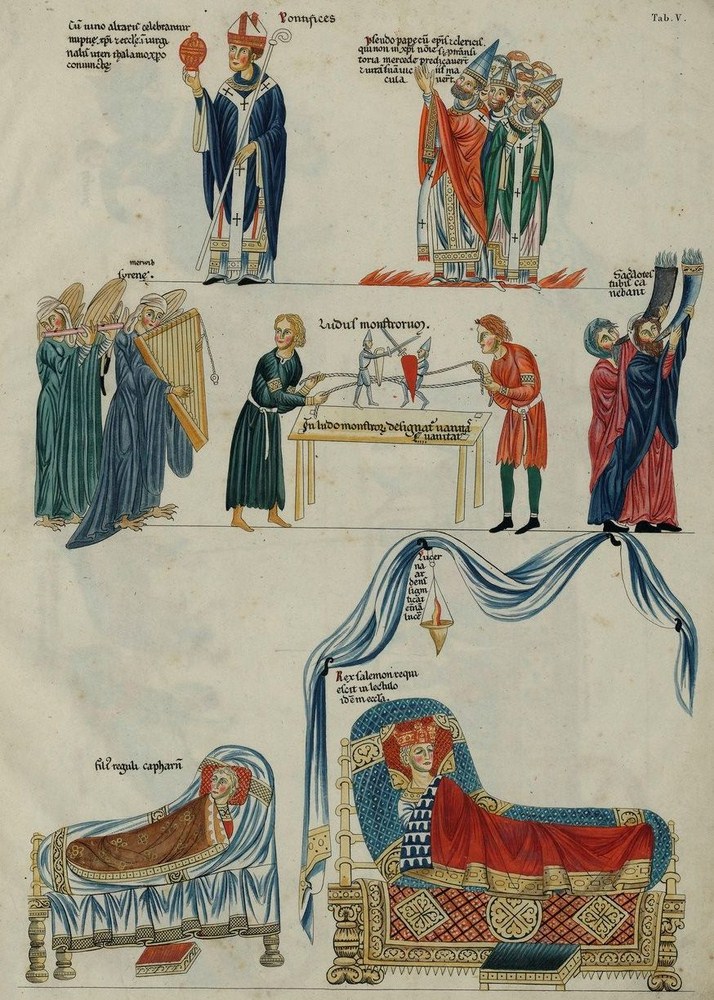 Tab. V.
Pontifices
Cū uino altaris celebrantur
nuptię xp̄i & ecclę i uirgi
nalis uteri thalamo xp̄o
coniunctę
Pseudo papę cū ep̄is & clericis
qui non in xp̄i nōīe s; p̄ transi
toria mercede predicauert
& uitā suā uic
cula
ma
uert.
syrenę.
Ludus monstrorum.
In ludo monstrorꝝ designat' uanitas
uanitat
Sacerdotes
tubis ca
nebant
Lucer
na
ar
dens
signi
ficat
lucē
Rex salemon requi
escit in lectulo
id ē in ecclā.
fili' reguli capharn̄